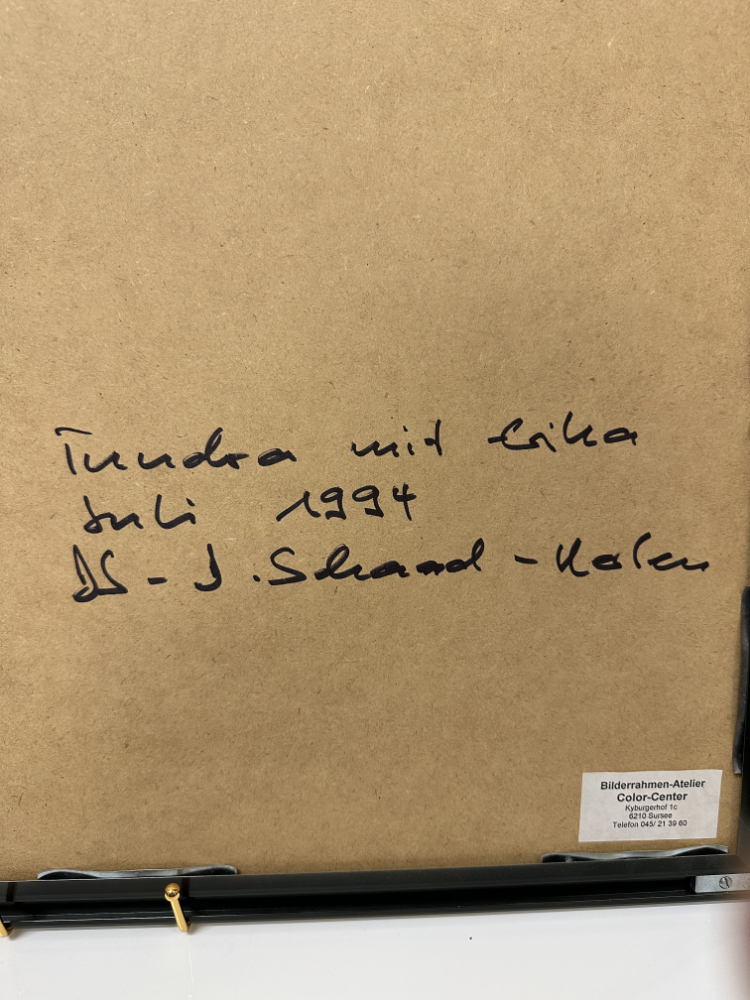 Tundra mit Erika
Juli 1994
J. Schaad-
Bilderrahmen-Atelier
Color-Center
Kyburgerhof 1c
6210 Sursee
Telefon 045/ 21 39 60